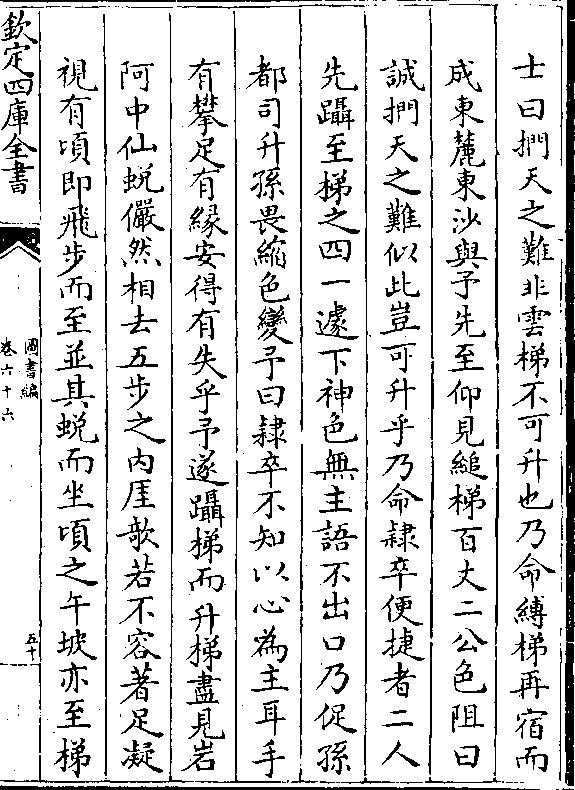 士曰捫天之難非雲梯不可升也乃命縛梯再宿而
成東麓東沙與予先至仰見縋梯百丈二公色阻曰
誠捫天之難似此豈可升乎乃命隸卒便捷者二人
先躡至梯之四一遽下神色無主語不出口乃促孫
都司升孫畏縮色變予曰隸卒不知以心為主耳手
有攀足有緣安得有失乎予遂躡梯而升梯盡見岩
阿中仙蛻儼然相去五步之内厓欹若不容著足凝
視有頃即飛步而至並其蛻而坐頃之午坡亦至梯
欽定四庫全書
圖書編
卷六十六
五十